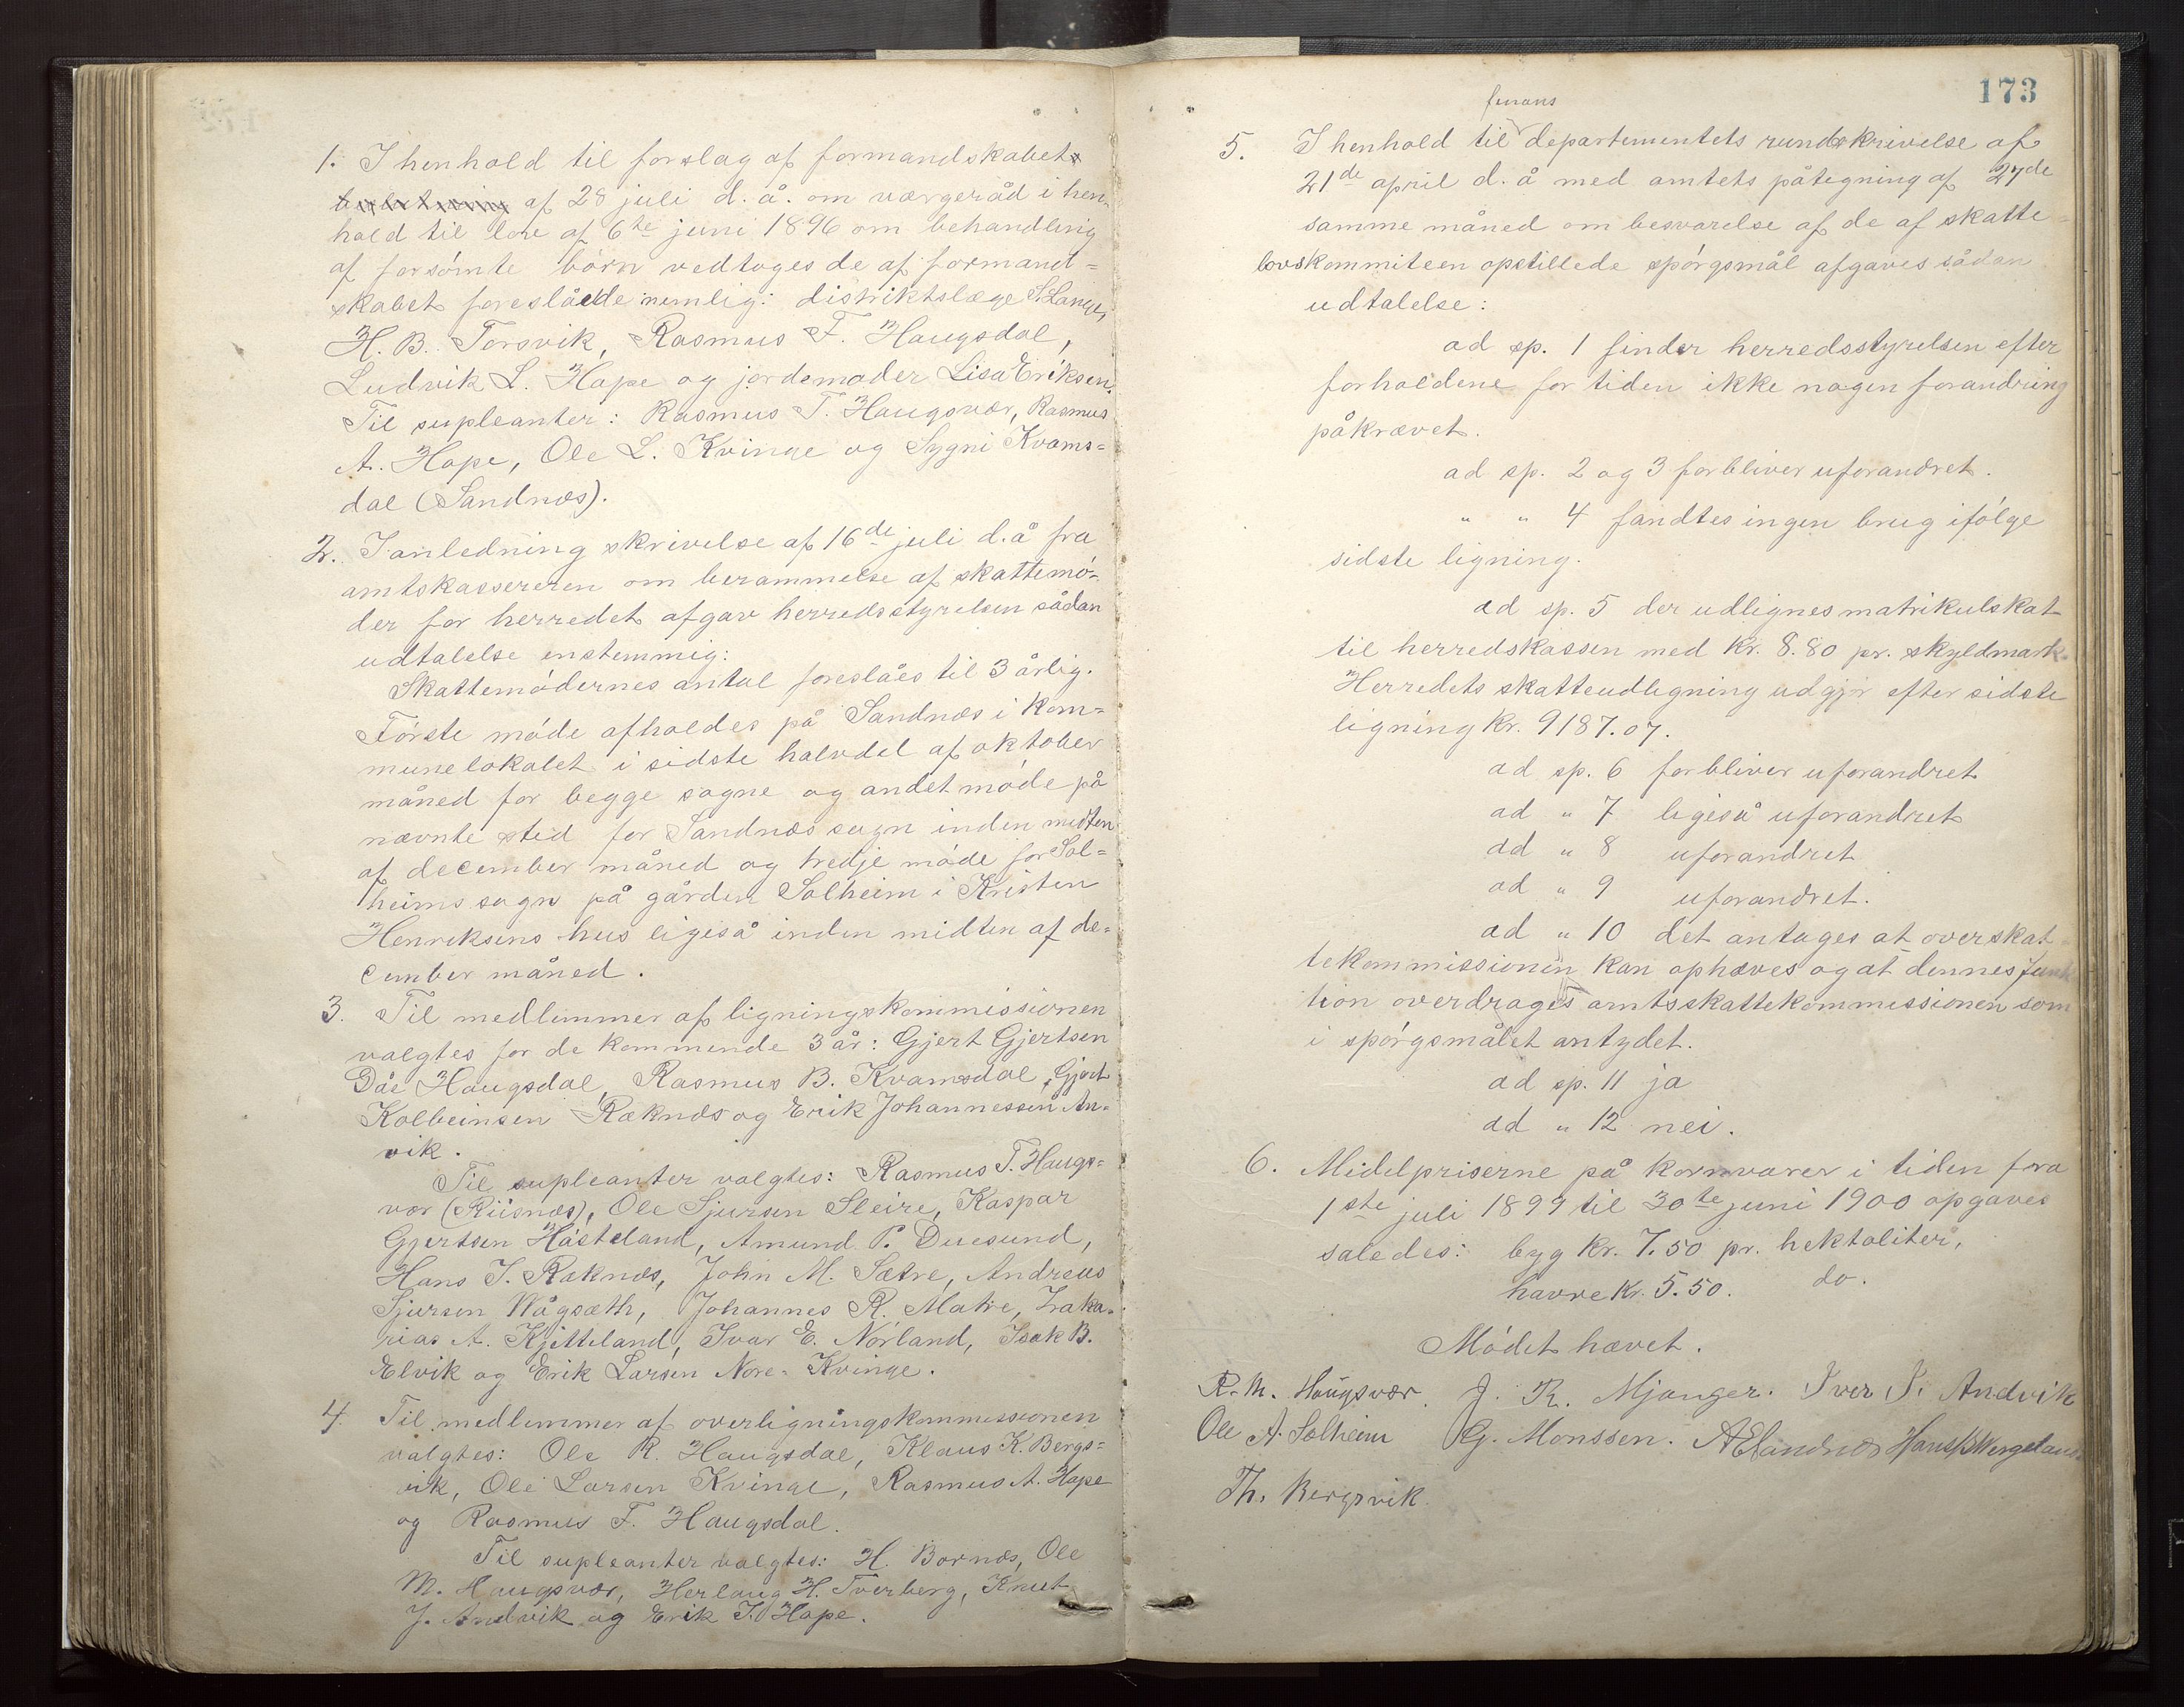 1. I henhold til forslag af formandskabet
af 28 juli d. å. om værgeråd i hen-
hold til lov af 6te juni 1896 om behandling
af forsömte börn vedtoges de af formand=
skabet foreslåede nemlig: distriktslæge S. Lange,
H. B. Torsvik, Rasmus F. Haugsdal,
Ludvik L. Hope og jordemoder Lisa Eriksen.
Til supleanter: Rasmus T. Haugsvær, Rasmus
A. Hope, Ole L. Kvinge og Sygni Kvams=
dal (Sandnæs).
2. I anledning skrivelse af 16de juli d.å fra
amtskassereren om berammelse af skattemö-
der for herredet afgav herredsstyrelsen sådan
udtalelse enstemmig:
Skattemödernes antal foreslåes til 3 årlig.
Förste möde afholdes på Sandnæs i kom=
munelokalet i sidste halvdel af oktober
måned for begge sogne og andet möde på
nævnte sted for Sandnæs sogn inden midten
af december måned og tredje möde for Sol=
heims sogn på gården Solheim i Kristen
Henriksens hus ligeså inden midten af de-
cember måned.
3. Til medlemmer af ligningskommissionen
valgtes for de kommende 3 år: Gjert Gjertsen
Dåe Haugsdal, Rasmus B. Kvamsdal, Gjert
Kolbeinsen Räknes og Erik Johannessen An-
vik.
Til supleanter valgtes: Rasmus T. Haugs=
vær (Riisnæs), Ole Sjursen Sleire, Kaspar
Gjertsen Hösteland, Amund P. Duesund,
Hans I. Räknæs, John M. Sætre, Andreas
Sjursen Wågsæth, Johannes R. Matre, Zaka-
rias A. Kjetteland, Ivar E. Nörland, Isak B.
Elvik og Erik Larsen Nore-Kvinge.
4. Til medlemmer af overligningskommissionen
valgtes: Ole R. Haugsdal, Klaus K. Bergs=
vik, Ole Larsen Kvinge, Rasmus A. Hope
og Rasmus F. Haugsdal.
Til supleanter valgtes: H. Bornæs, Ole
M. Haugsvær, Herlaug H. Tverberg, Knut
J. Andvik og Erik I. Hope.
173
finans
5. I henhold til departementets rundskrivelse af
21de april d. å med amtets påtegning af 27de
samme måned om besvarelse af de af skatte=
lovskommiteen opstillede spörgsmål afgaves sådan
udtalelse:
ad sp. 1 finder herredsstyrelsen efter
forholdene for tiden ikke nogen forandring
påkrævet.
ad sp. 2 og 3 forbliver uforandret.
" " 4 fandtes ingen brug ifölge
sidste ligning.
ad sp. 5 der udlignes matrikulskat
til herredskassen med kr. 8.80 pr. skyldmark.
Herredets skatteudligning udgjör efter sidste
ligning kr. 9187.07.
ad sp. 6 forbliver uforandret
ad " 7 ligeså uforandret
ad " 8 uforandret
ad " 9 uforandret.
ad " 10 det antages at overskat=
tekommissionen kan ophæves og at dennes funk
tion overdrages amtsskattekommissionen som
i spörgsmålet antydet.
ad sp. 11 ja
ad " 12 nei.
6. Midelpriserne på kornvarer i tiden fra
1ste juli 1899 til 30te juni 1900 opgaves
saledes: byg kr. 7.50 pr. hektoliter,
havre kr. 5.50. do.
Mödet hævet.
R. M. Haugsvær. J. R. Mjanger. Iver J. Andvik
Ole A. Solheim G. Monssen. A E Sandnæs Hans B Wergeland
Th. Bergsvik.